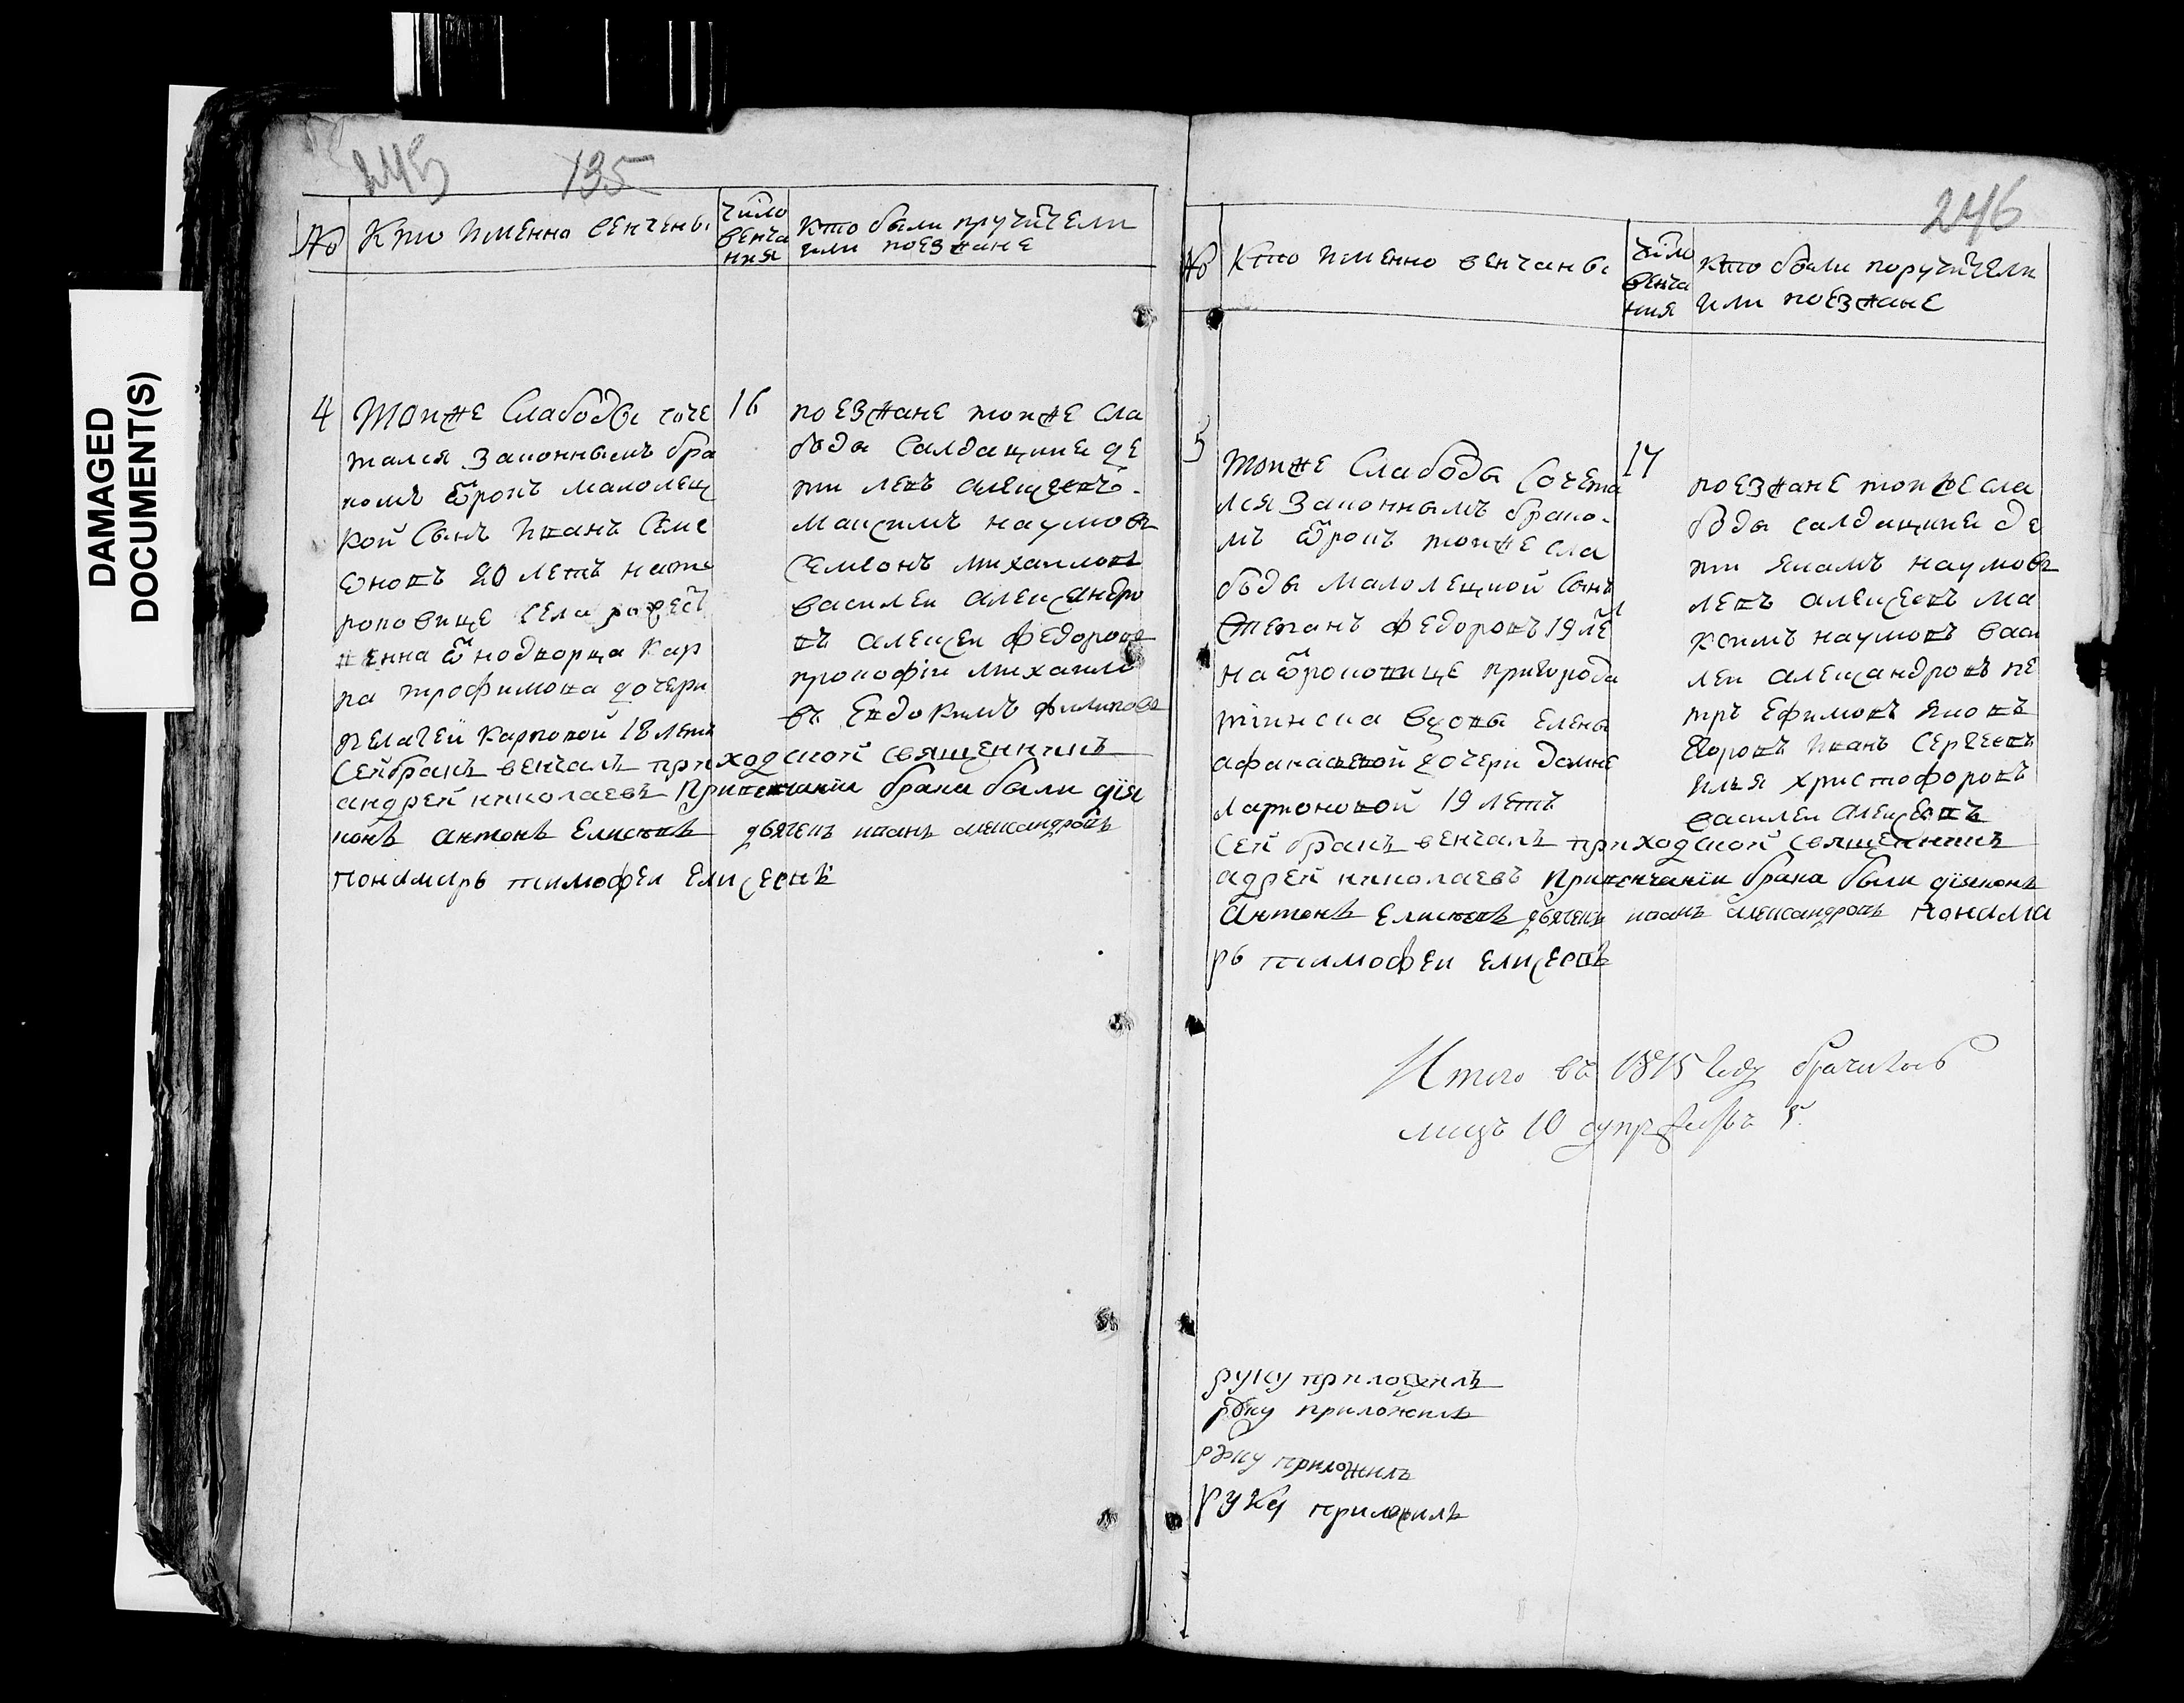 DAMAGED
DOCUMENT(S)
245 135
№ Кто имЕнно вЕнчЕны
число
вЕнча
ния
Кто были пручители
или поЕзжанЕ
4 ТойжЕ Слабоды сочЕ
тался Законнымъ бра
комъ ѿрокъ малолЕц
кой Сынъ Иванъ СЕмЕ
оновъ 20 лЕтъ на
роковицЕ сЕла
ѿ нодворца Кар
па трофимова дочЕри
пЕлагЕи Карповой 18 лЕтъ
16
поЕзжанЕ тойжЕ сла
боды салдацкиЕ дЕ
ти лЕвъ алЕксЕЕвъ
Максимъ наумовъ
СЕмЕонъ михаиловъ
василЕи алЕксандро
въ алЕксЕи фЕдоровъ
прокофiи михаило
въ Евдокимъ филиповъ
СЕй бракъ вЕнчалъ приходской свящЕнникъ
андрЕй николаЕвъ При вЕнчанiи брака были дiя
конъ антонъ ЕлисЕЕвъ дьячЕкъ иванъ алЕксандровъ
понамарь тимофЕи ЕлисЕЕвъ
246
№ Кто имЕнно вЕнчаны
число
вЕнча
ния
Кто были поручитЕли
или поЕзжанЕ
5 ТойжЕ Слабоды СочЕта
лся Законнымъ брако
мъ ѿрокъ тойжЕ сла
боды малолЕцкой Сынъ
СтЕпанъ фЕдоровъ 19 лЕт
на ѿроковицЕ пригорода
тiинска вдовы ЕлЕны
афанасЕвой дочЕри домнЕ
ларионовой 19 лЕтъ
17
поЕзжанЕ тойжЕ сла
боды салдацкиЕ дЕ
ти наумовъ
лЕвъ алЕксЕЕвъ ма
ксимъ наумовъ васи
лЕи алЕксандровъ пЕ
тръ Ефимовъ яковъ
Егоровъ иванъ СЕргЕЕвъ
илья христофоровъ
василЕи алЕксЕЕвъ
СЕй бракъ вЕнчалъ приходской свящЕнникъ
адрЕй николаЕвъ При вЕнчанiи брака были дiяконъ
Антонъ ЕлисЕЕвъ дьячЕкъ иванъ алЕксандровъ понама
рь тимофЕи ЕлисЕЕвъ
Итого въ 1815 году брачилось
лицъ 10 супружествъ 5.
руку приложилъ
руку приложилъ
руку приложилъ
руку приложилъ